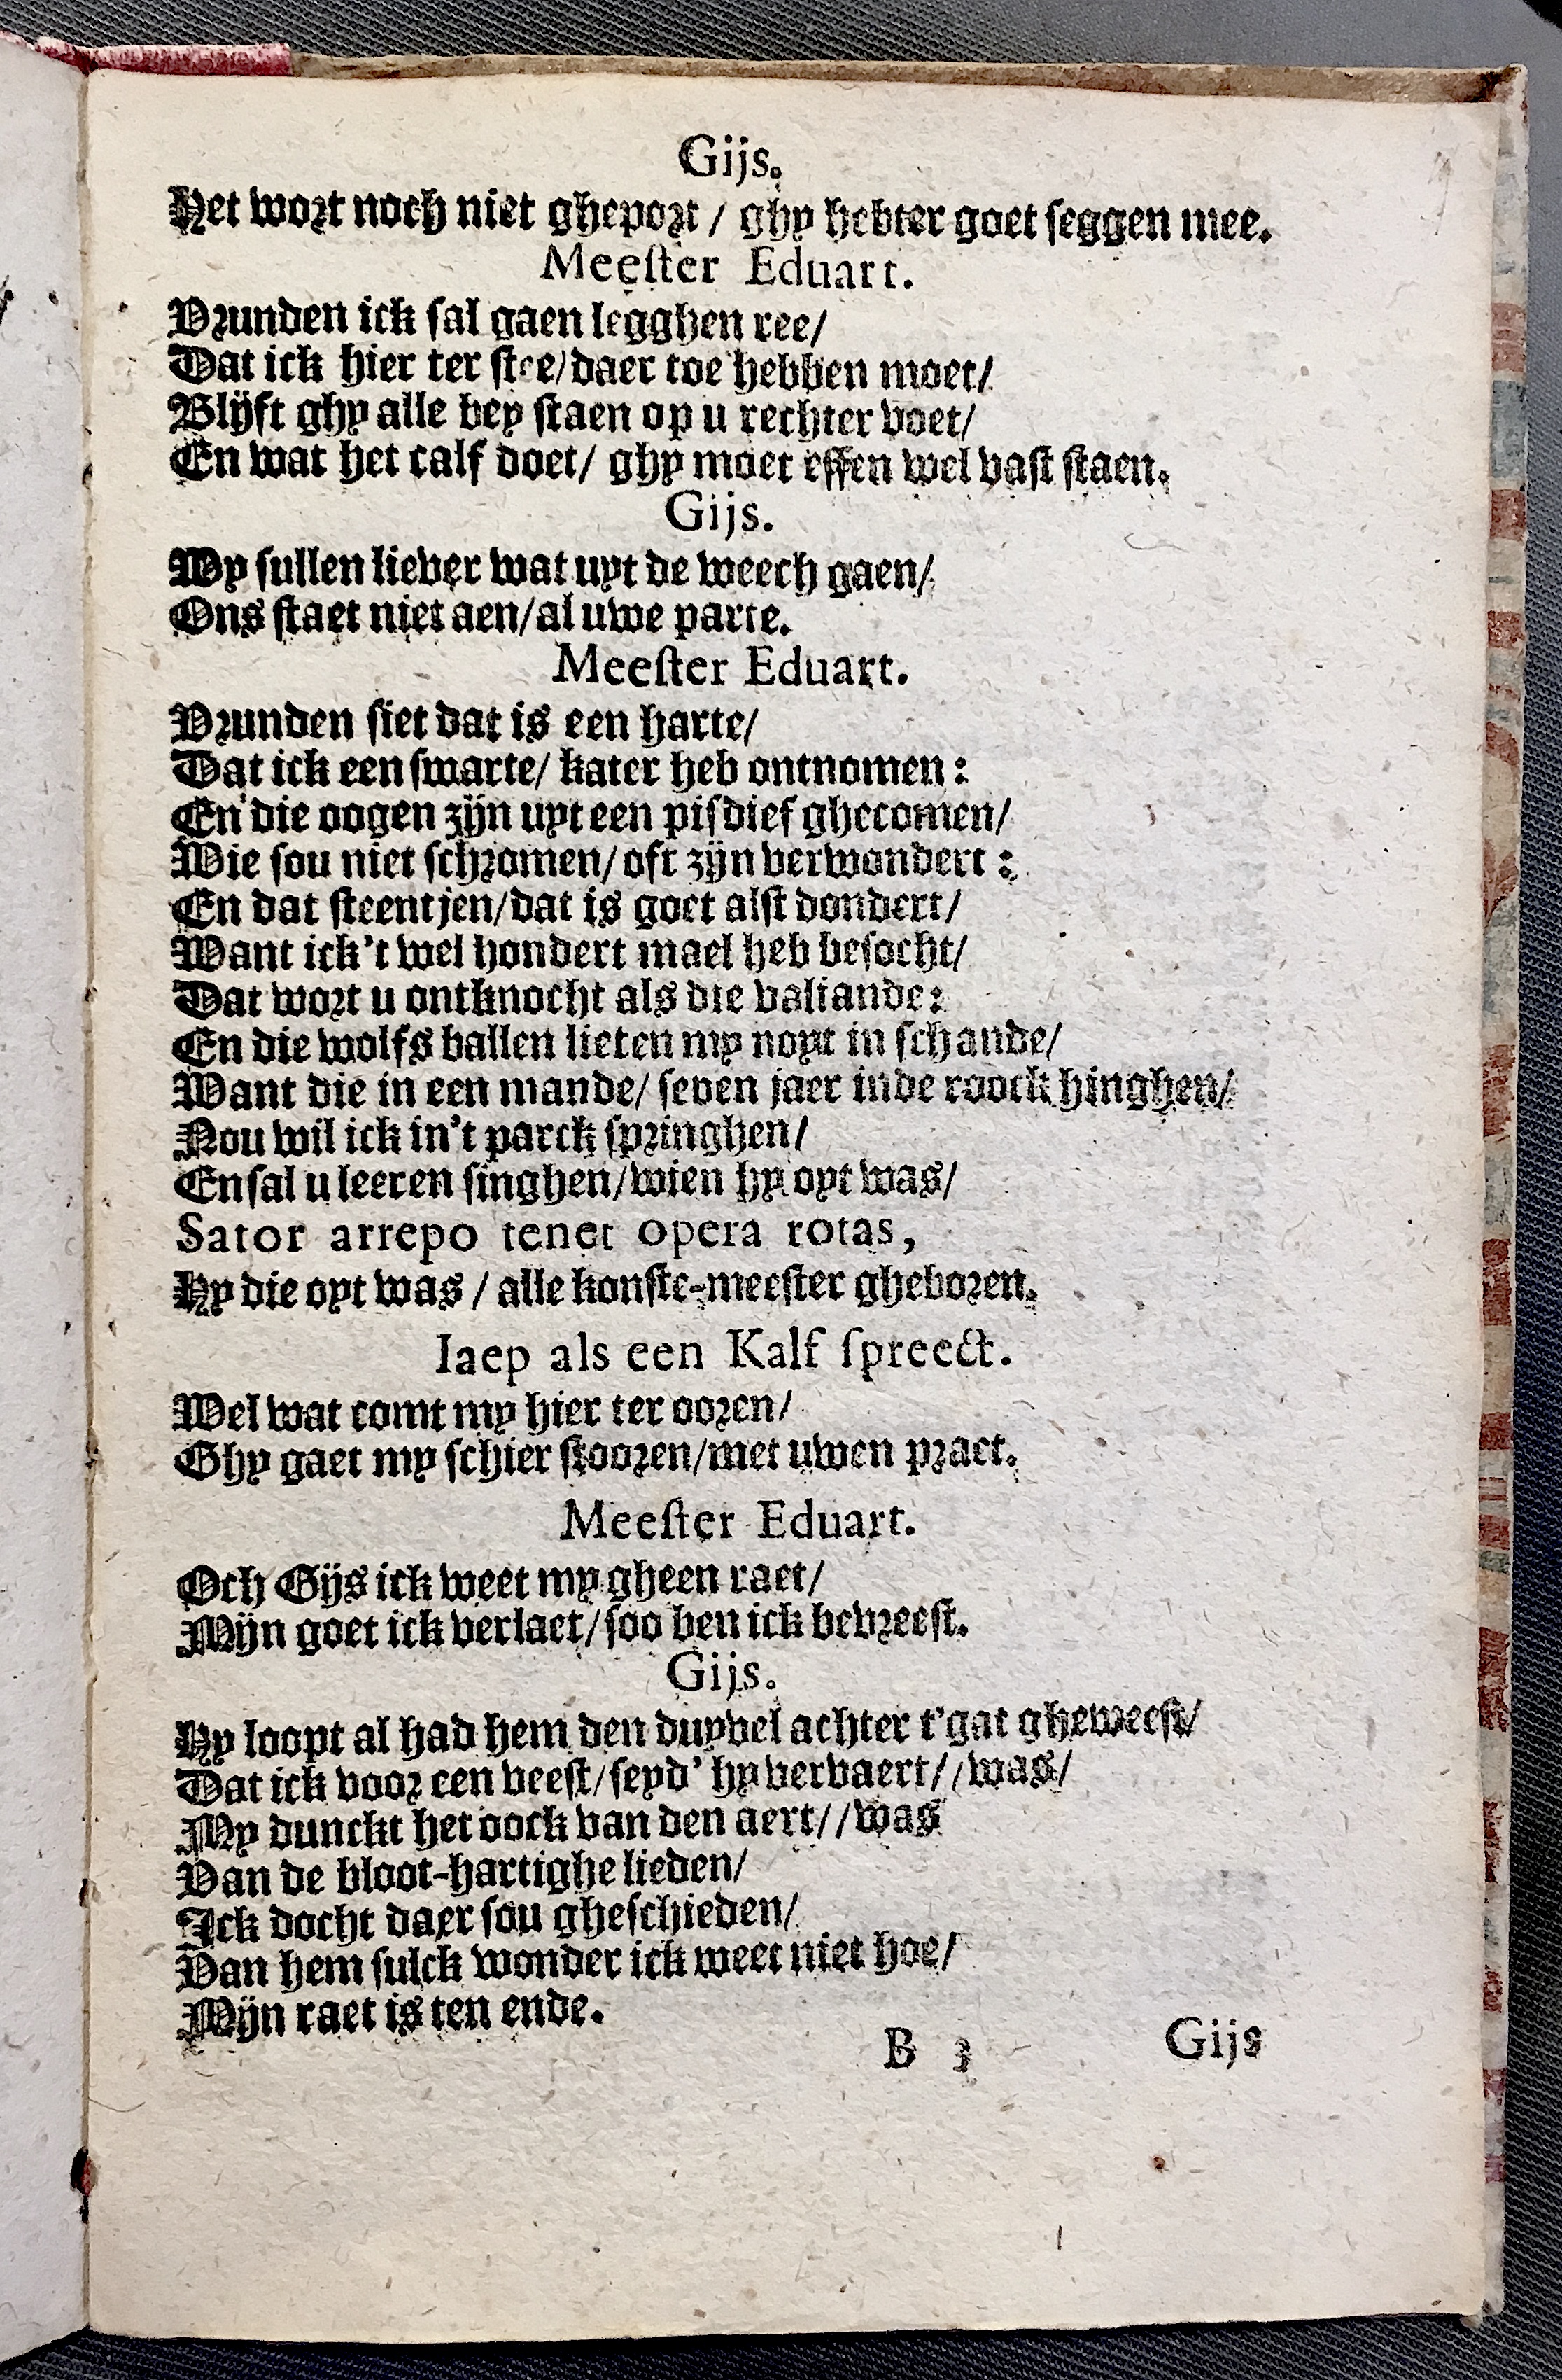 Gijs.
Het wort noch niet gheport / ghy hebter goet seggen mee.
Meester Eduart.
Vrunden ick sal gaen legghen ree/
Dat ick hier ter stee/daer toe hebben moet/
Blijft ghy alle bey staen op u rechter voet/
En wat het calf doet/ ghy moet effen wel vast staen.
Gijs.
Wy sullen liever wat uyt de weech gaen/
Ons staet niet aen/al uwe parte.
Meester Eduart.
Vrunden siet dat is een harte/
Dat ick een swarte/ kater heb ontnomen:
En die oogen zijn uyt een pisdief ghecomen/
Wie sou niet schromen/ oft zijn verwondert:
En dat steentjen/dat is goet alst dondert/
Want ick't wel hondert mael heb besocht/
Dat wort u ontknocht als die valiande:
En die wolfs ballen lieten my noyt in schande/
Want die in een mande/ seven jaer inde roock hinghen/
Nou wil ick in't parck springhen/
En sal u leeren singhen/wien hy oyt was/
Sator arrepo tenet opera rotas,
Hy die oyt was / alle konste-meester gheboren.
Iaep als een Kalf spreect.
Wel wat comt my hier ter ooren/
Ghy gaet my schier stooren/met uwen praet.
Meester Eduart.
Och Gijs ick weet my gheen raet/
Mijn goet ick verlaet/soo ben ick bevreest.
Gijs.
Hy loopt al had hem den duyvel achter t'gat gheweest/
Dat ick voor een veest/seyd' hy vervaert//was/
My dunckt het oock van den aert//was
Van de bloot-hartighe lieden/
Ick docht daer sou gheschieden/
Van hem sulck wonder ick weet niet hoe/
Mijn raet is ten ende.
B 3 Gijs